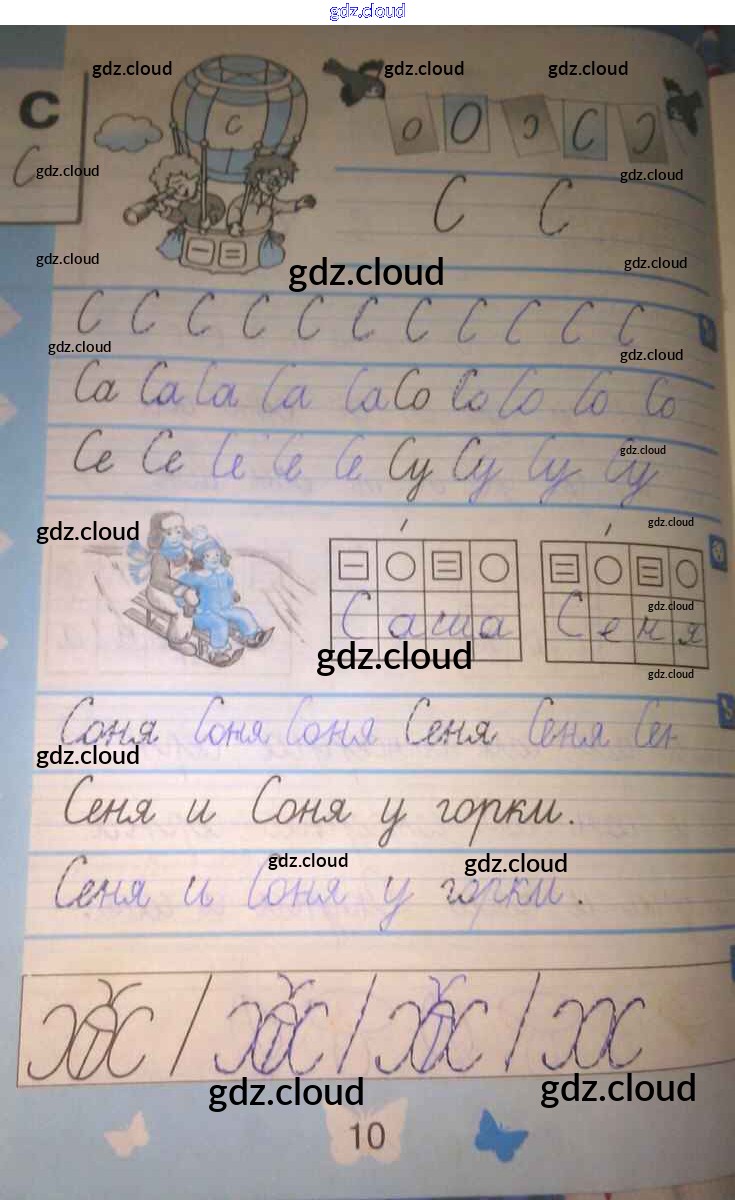 gdz.cloud
gdz.cloud gdz.cloud gdz.cloud
С
С
С
о О С
gdz.cloud gdz.cloud
С С
gdz.cloud gdz.cloud
gdz.cloud
С С С С С С С С С С С
gdz.cloud gdz.cloud
Са Са Са Са Са Со Со Со Со Со
Се Се Се Се Се Су Су Су Су
gdz.cloud
gdz.cloud gdz.cloud
Саша Сеня
gdz.cloud
gdz.cloud
gdz.cloud
Соня Соня Соня Сеня Сеня Сен
gdz.cloud
Сеня и Соня у горки.
gdz.cloud gdz.cloud
Сеня и Соня у горки.
gdz.cloud gdz.cloud
10